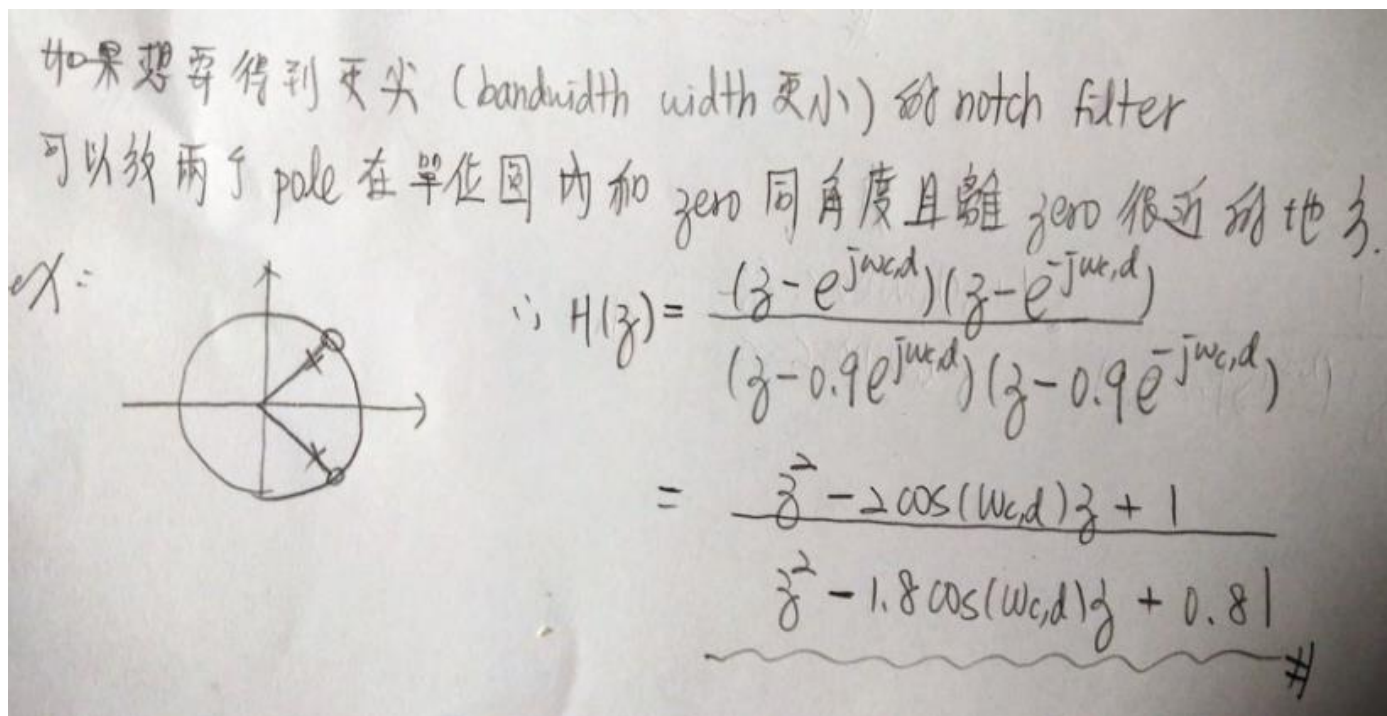 如果想要得到更尖 (bandwidth width 更小) 的 notch filter
可以放兩个 pole 在單位圓內和 zero 同角度且離 zero 很近的地方.
ex:
∴ H(z) = (z - e^{jωc,d})(z - e^{-jωc,d}) / (z - 0.9e^{jωc,d})(z - 0.9e^{-jωc,d})
= z² - 2cos(ωc,d)z + 1 / z² - 1.8cos(ωc,d)z + 0.81 #